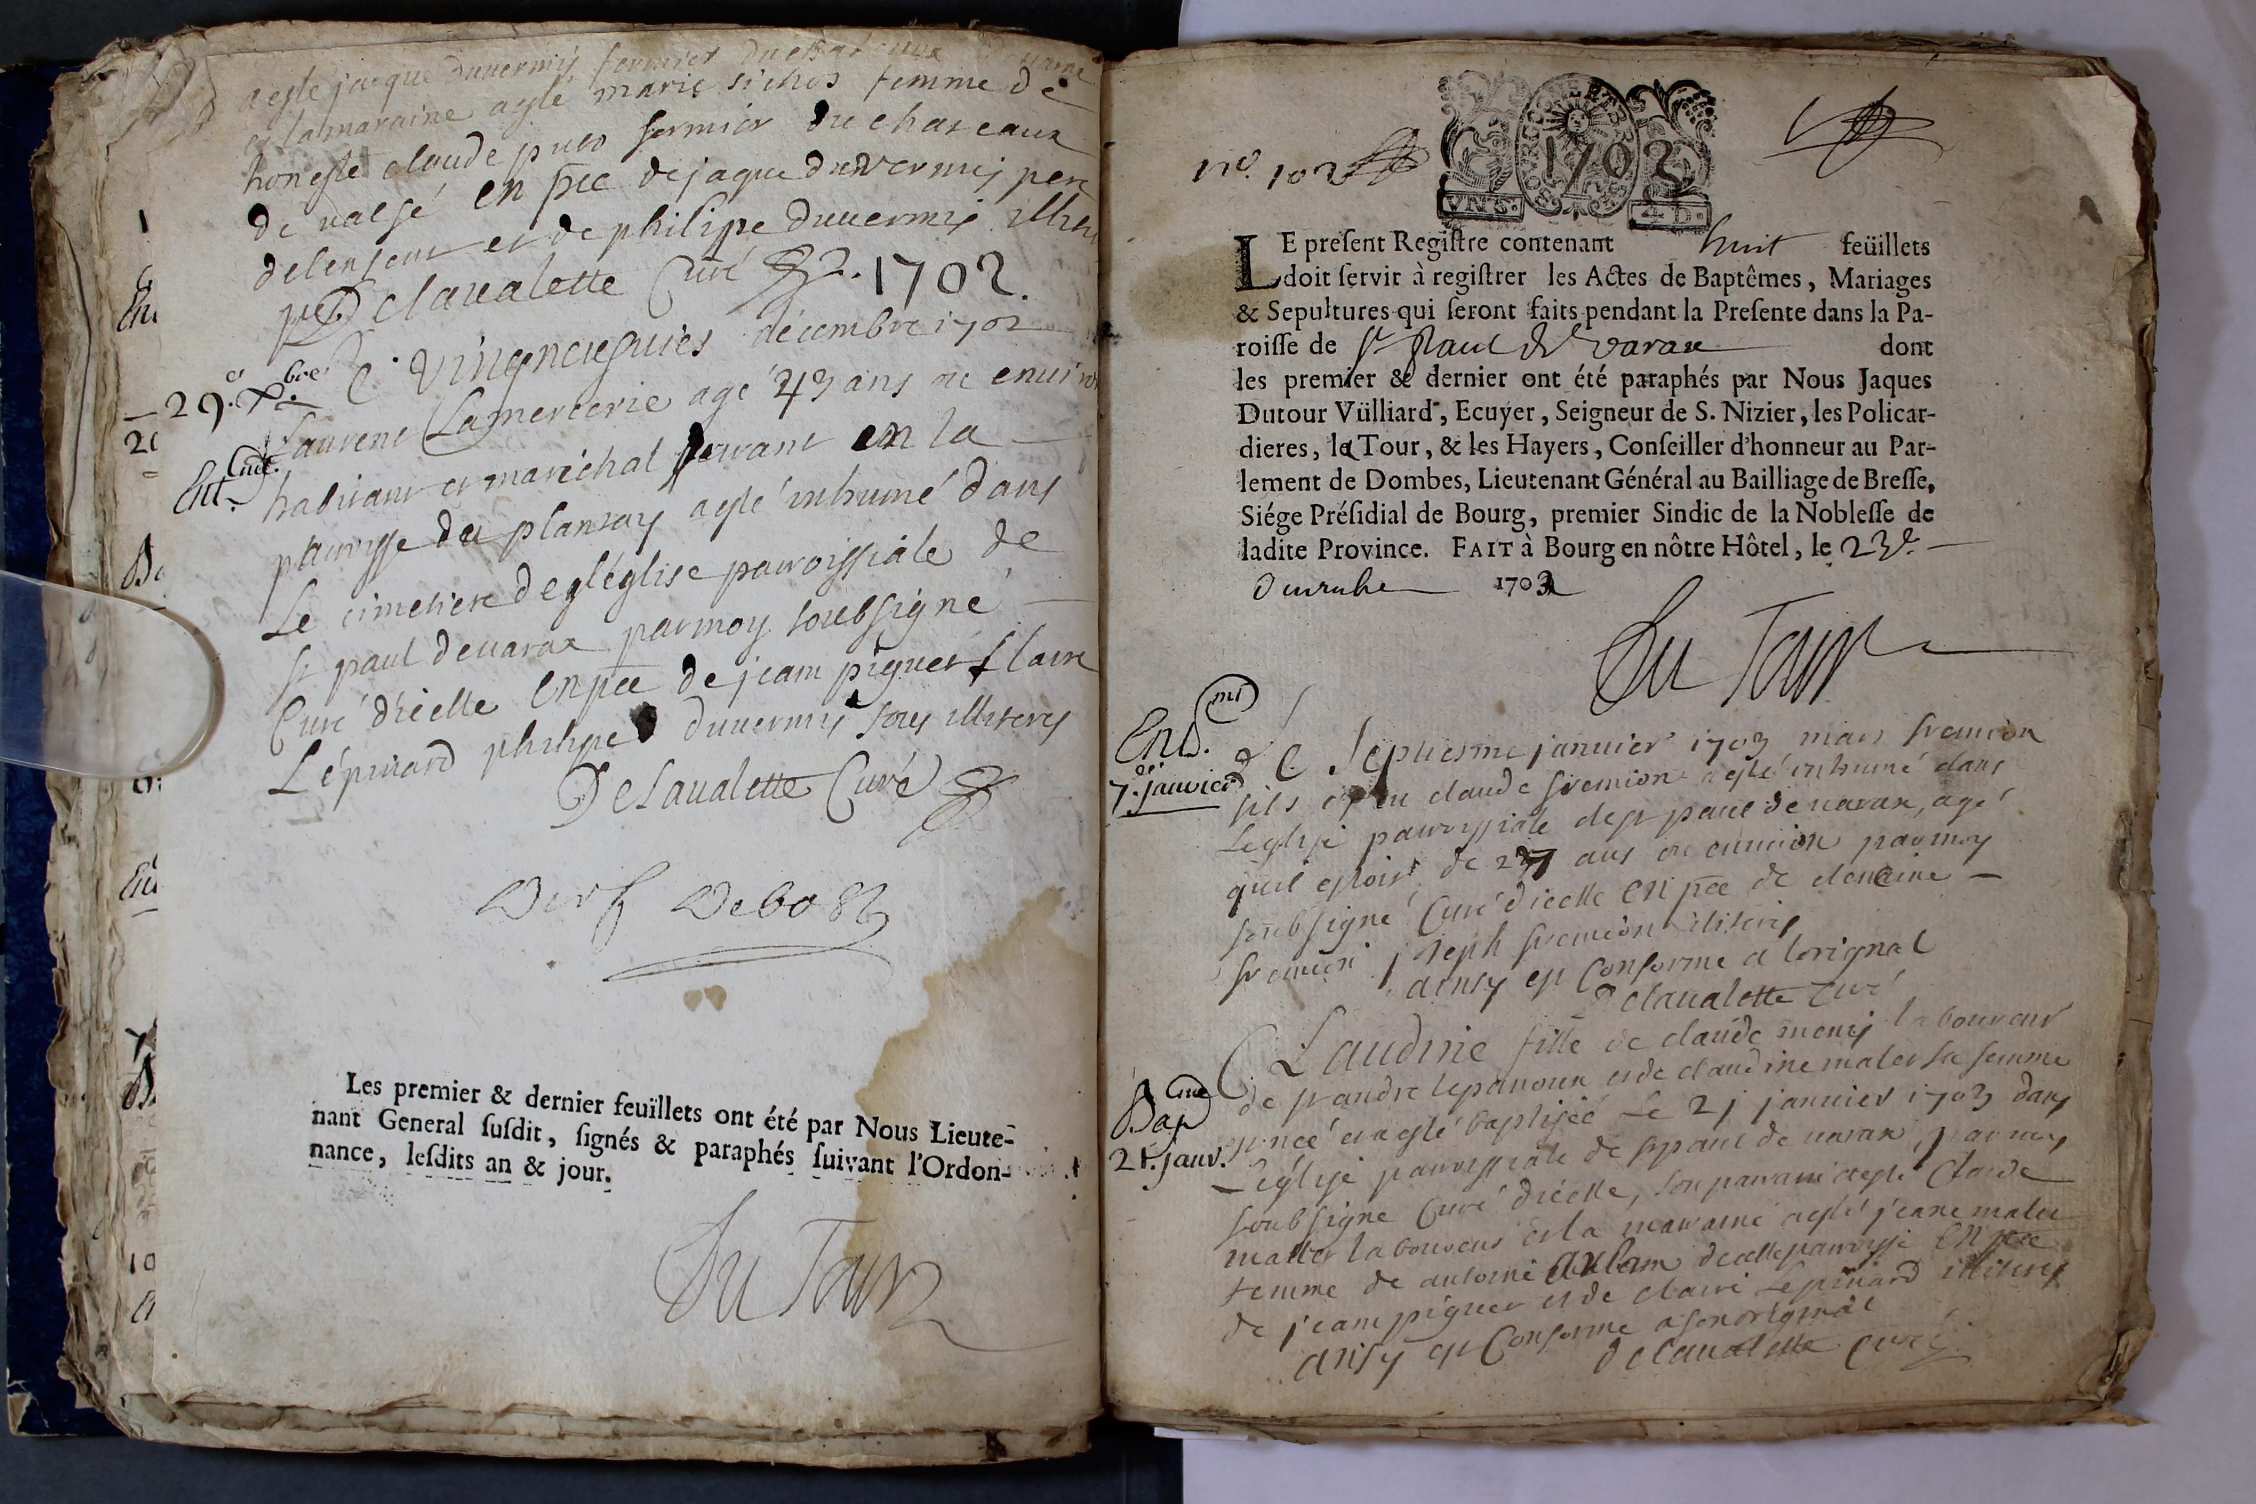 a esté jacque duvernis fermier du chateaux
et la maraine a esté marie sichos femme de
honeste claude puvo fermier du chateaux
de valse en pñce de jaque duvernis pere
de lenfent et de philipe duvernis illite
Delavalette Curé 1702.
29.e Xbre
Le vingneufvies décembre 1702
Laurent Lamercerie agé 43 ans ou environ
Ent.
habitant et maréchal servant en la
parroisse du plantay a esté inhumé dans
Le cimetiere de st église parroissiale de
st paul de varax par moy soubsigné
Curé d'icelle en pñce de jeam piguet Claire
Lépinard philipe duvernis tous illiterés
Delavalette Curé
Les premier & dernier feuïllets ont été par Nous Lieute-
nant General susdit, signés & paraphés suivant l'Ordon-
nance, lesdits an & jour.
Du Tour
BOURG
1702
VN S.
4 D.
LE present Registre contenant huit feüillets
doit servir à registrer les Actes de Baptêmes, Mariages
& Sepultures qui seront faits pendant la Presente dans la Pa-
roisse de St Paul de varax dont
les premier & dernier ont été paraphés par Nous Jaques
Dutour Vüilliard, Ecuyer, Seigneur de S. Nizier, les Policar-
dieres, la Tour, & les Hayers, Conseiller d'honneur au Par-
lement de Dombes, Lieutenant Général au Bailliage de Bresse,
Siége Présidial de Bourg, premier Sindic de la Noblesse de
ladite Province. FAIT à Bourg en nôtre Hôtel, le 23e.
1702
Du Tour
Ent.
7.e janvier
Le septiesme janvier 1703 mari fremion
fils de feu claude fremion a esté inhumé dans
Leglise parroissiale de st paul de varax, agé
quil estoit de 27 ans ou environ par moy
soubsigné Curé d'icelle en pñce de
fremion joseph fremion illiterés
ainsy est Conforme a lorignal
Delavalette curé
Bap
21. janv.
Claudine fille de claude monis laboureur
de grandre lepanoux et de claudine mater sa femme
est née et a esté baptiséé Le 21 janvier 1703 dans
Léglise parroissiale de st paul de varax, par moy
soubsigné Curé d'icelle, son parrain a esté claude
matter laboureur et la maraine a esté jeane mater
femme de antoine de cette parroisse en pñce
de jeam piguet et de claire Lepinard illiterés
ainsy est Conforme a son original
delavalette curé